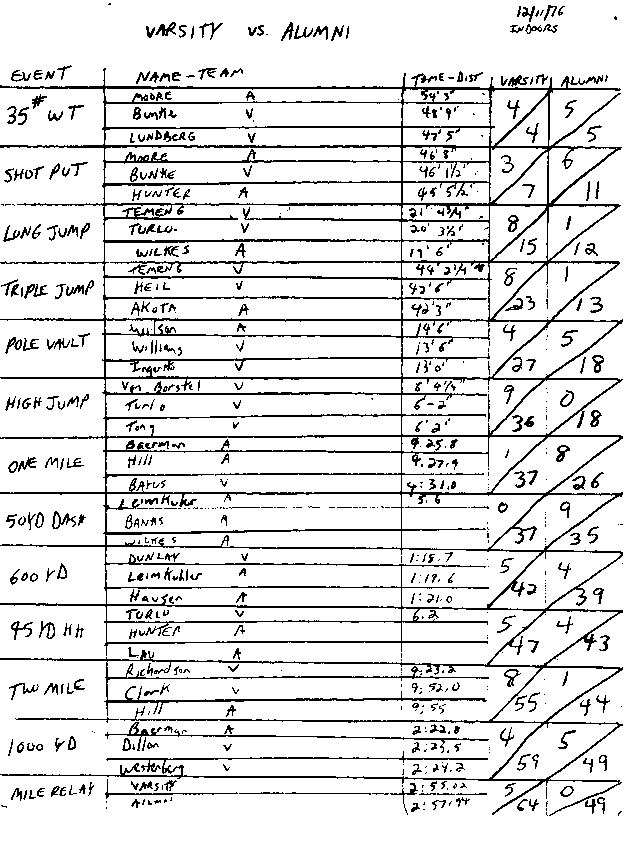 12/11/76
INDOORS
VARSITY VS. ALUMNI
EVENT NAME-TEAM TIME-DIST VARSITY ALUMNI
MOORE A 54'5"
35# WT Bunke V 48'9" 4 5
LUNDBERG V 47'5" 4 5
MOORE A 46'8"
SHOT PUT BUNKE V 46'1/2" 3 6
HUNTER A 45'5 1/2" 7 11
TEMENG V 21' 4 3/4"
LONG JUMP TURLO V 20' 3 1/2" 8 1
WILKES A 19'6" 15 12
TEMENG V 44'2 1/4"
TRIPLE JUMP HEIL V 42'6" 8 1
AKOTA A 42'3" 23 13
Wilson A 14'6"
POLE VAULT Williams V 13'6" 4 5
V 13'0" 27 18
Von Borstel V 6' 4 1/4"
HIGH JUMP Turlo V 6-2" 9 0
Tony V 6'2" 36 18
Baerman A 4.25.8
ONE MILE Hill A 4.27.9 1 8
BATUS V 4:31.0 37 26
LeimKuhler A 5.6
50 YD DASH BANAS A 0 9
WILKES A 37 35
DUNLAY V 1:15.7
600 YD LeimKuhler A 1:19.6 5 4
Hausen A 1:21.0 42 39
TURLO V 6.2
45 YD HH HUNTER A 5 4
LAU A 47 43
Richardson V 9:23.2
TWO MILE Clark V 9:52.0 8 1
Hill A 9:55 55 44
Baerman A 2:22.8
1000 YD Dillon V 2:23.5 4 5
Westerberg V 2:24.2 59 49
MILE RELAY VARSITY 2:55.02 5 0
ALUMNI 2:57.44 64 49